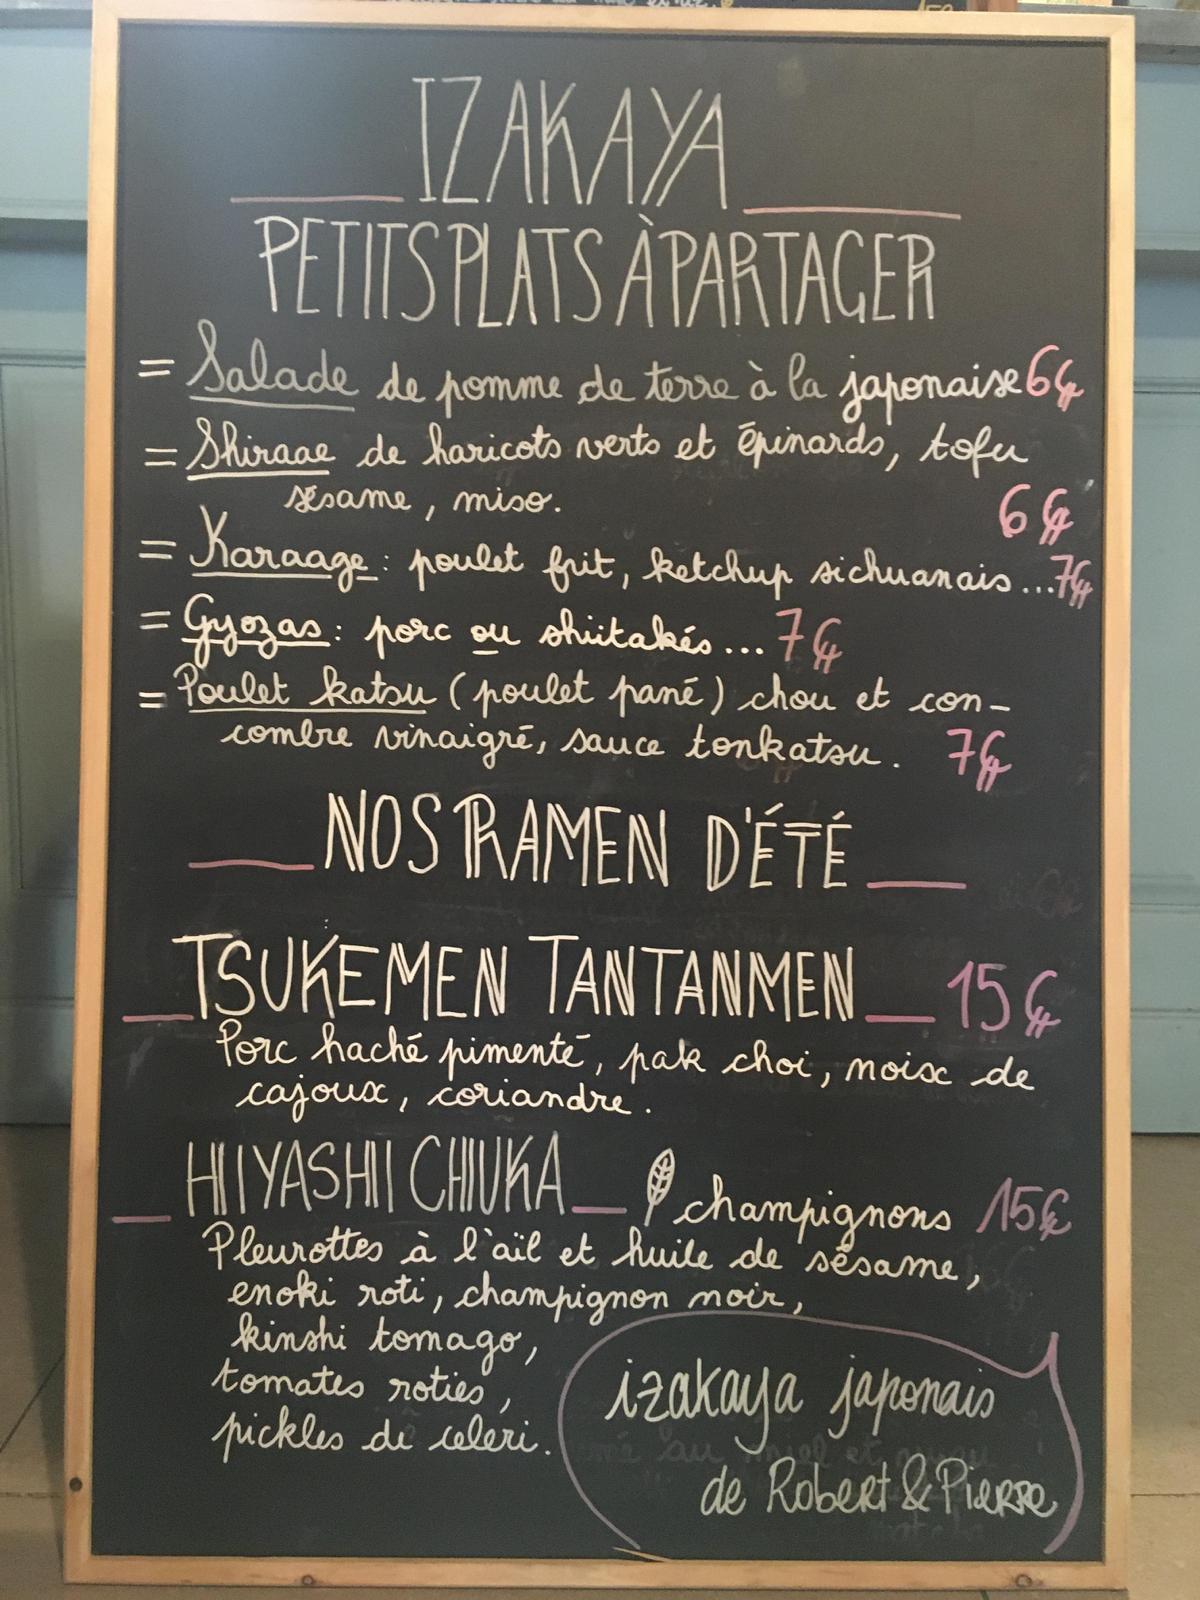 IZAKAYA
PETITS PLATS À PARTAGER
= Salade de pomme de terre à la japonaise 6€
= Shiraae de haricots verts et épinards, tofu
sésame, miso. 6€
= Karaage : poulet frit, ketchup sichuanais ... 7€
= Gyozas : porc ou shiitakés ... 7€
= Poulet katsu (poulet pané) chou et con-
combre vinaigré, sauce tonkatsu. 7€
NOS RAMEN D'ÉTÉ
TSUKEMEN TANTANMEN 15€
Porc haché pimenté, pak choi, noix de
cajoux, coriandre.
HIYASHI CHUKA champignons 15€
Pleurottes à l'aïl et huile de sésame,
enoki roti, champignon noir,
kinshi tomago,
tomates roties,
pickles de celeri.
izakaya japonais
de Robert & Pierre